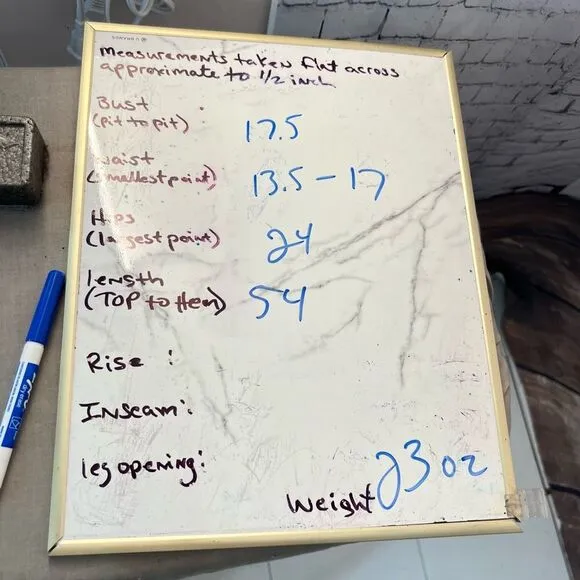 Measurements taken flat across
approximate to 1/2 inch
Bust :
(pit to pit) 17.5
waist
(smallest point) 13.5 - 17
Hips
(largest point) 24
length
(TOP to Hem) 54
Rise :
Inseam :
leg opening :
Weight 23 oz